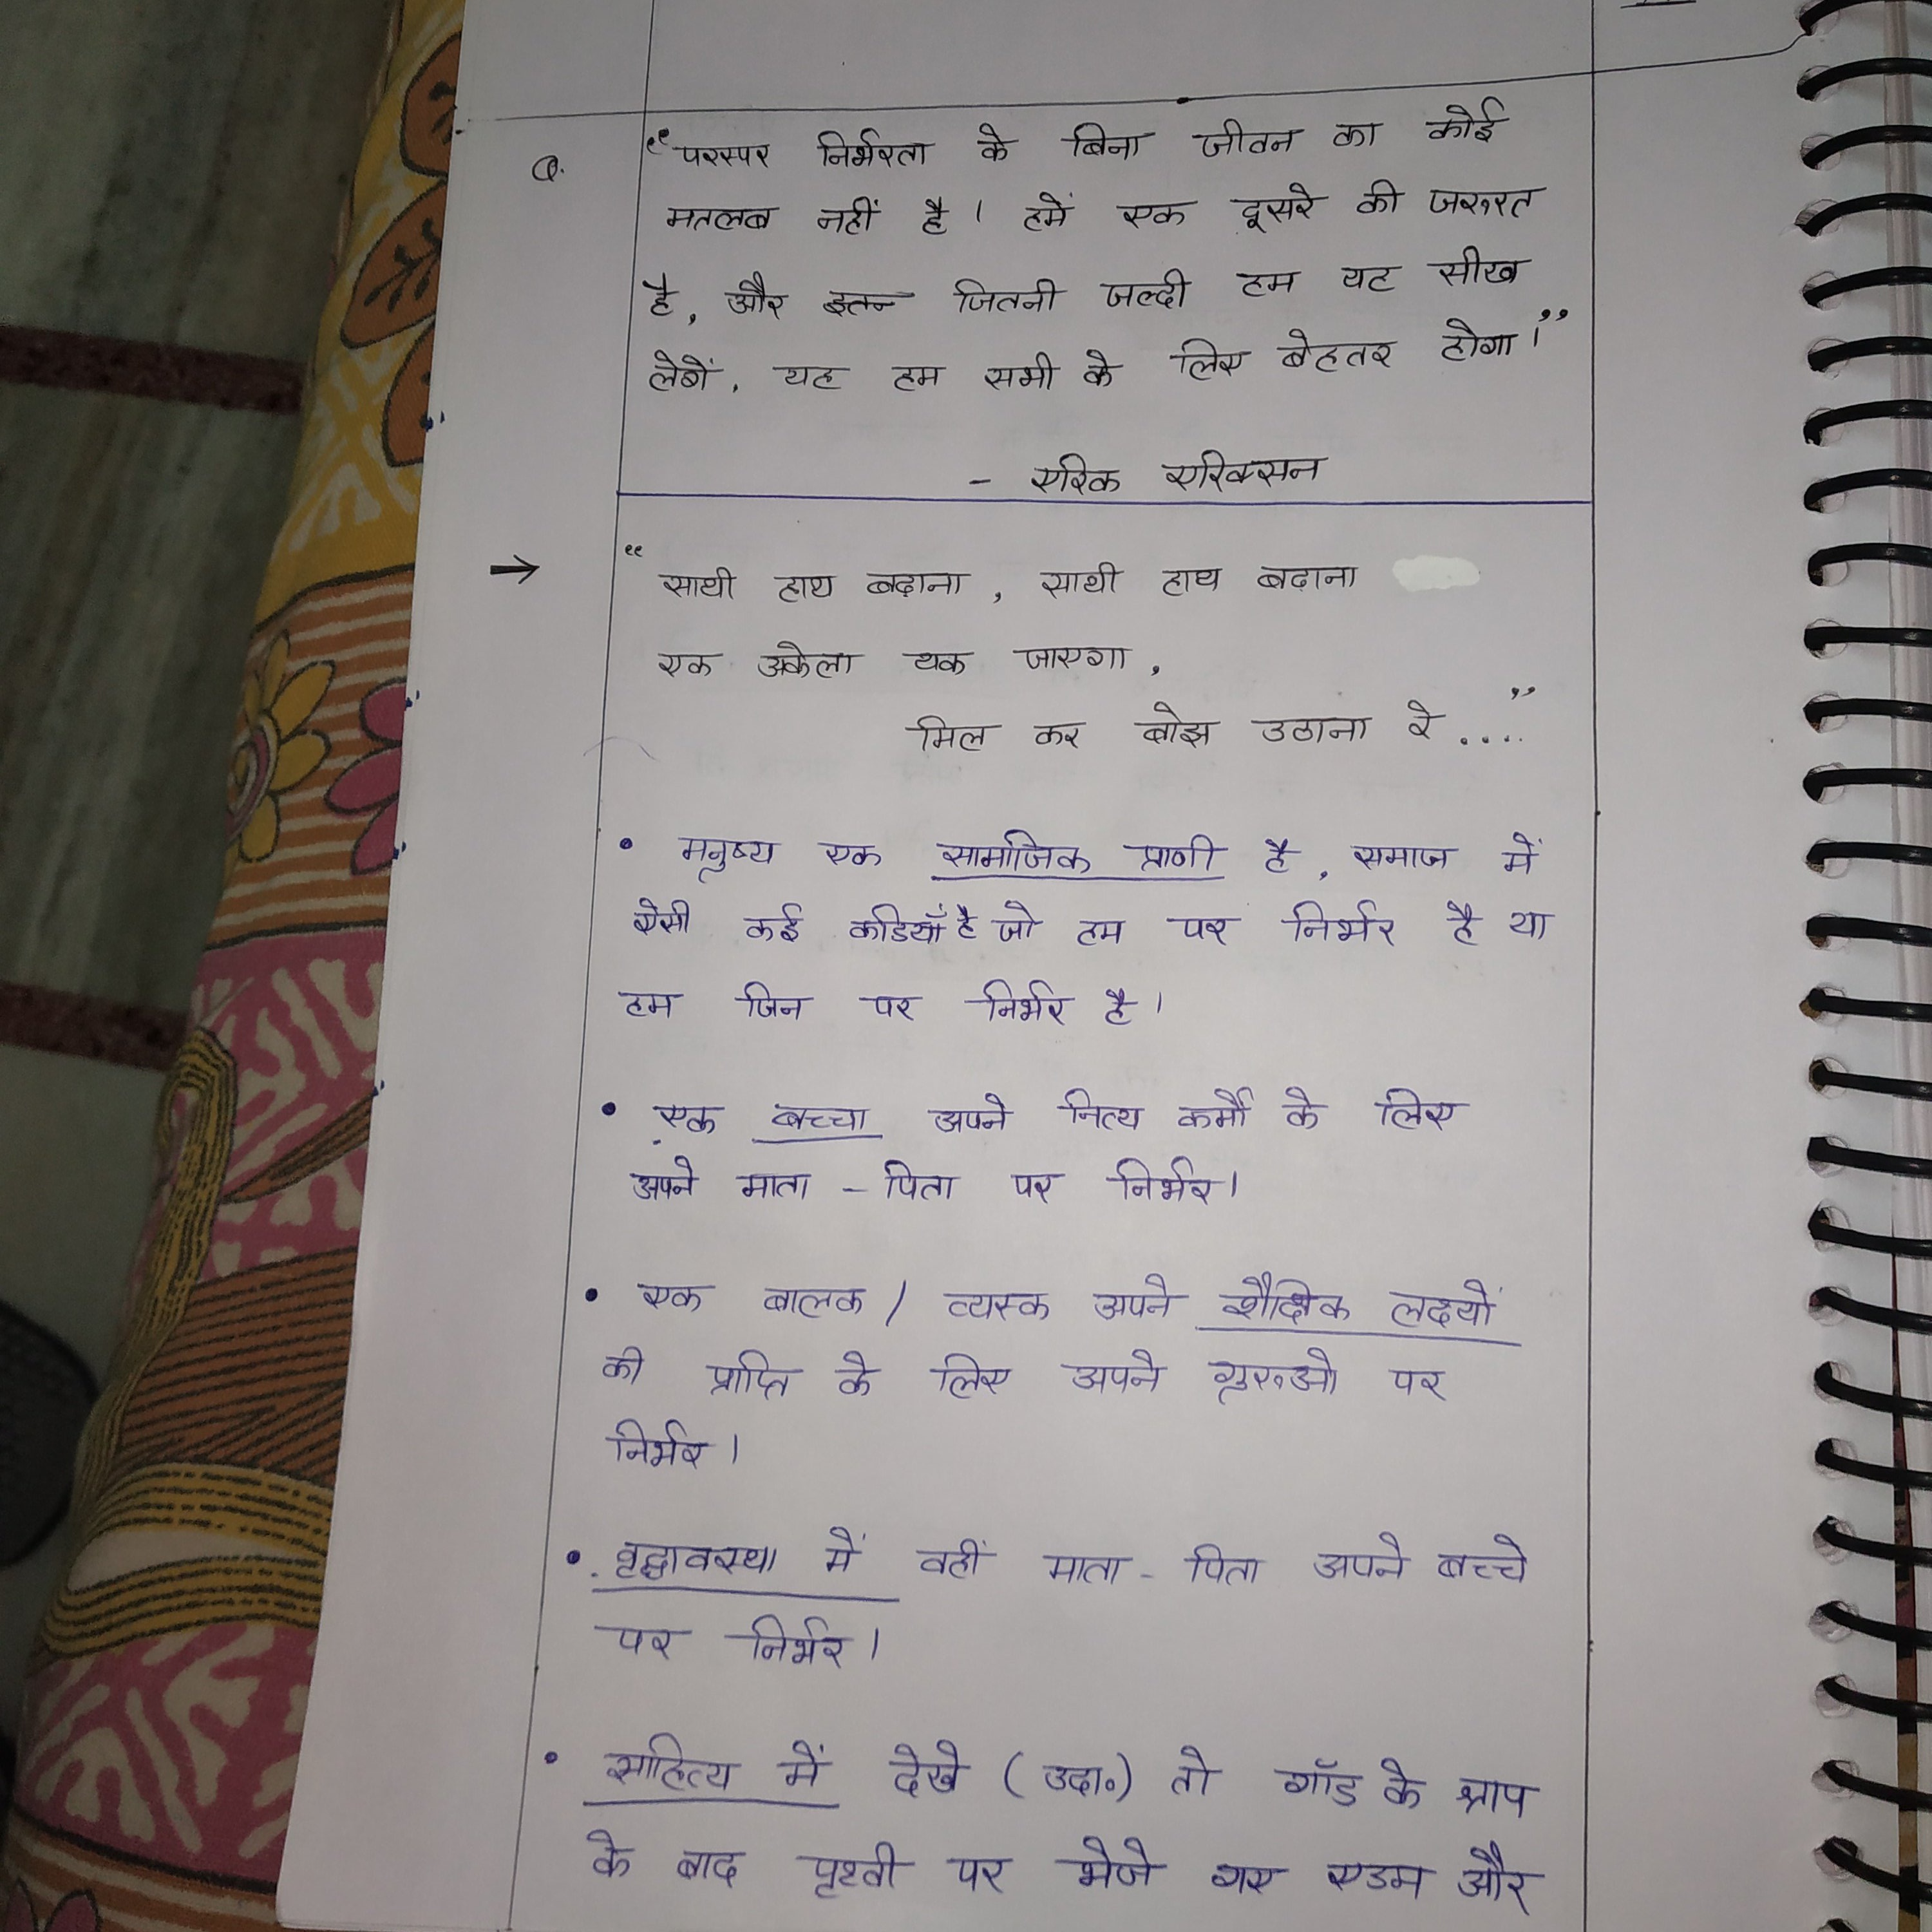 Q. "परस्पर निर्भरता के बिना जीवन का कोई
मतलब नहीं है। हमें एक दूसरे की जरूरत
है, और जितनी जल्दी हम यह सीख
लेगें, यह हम सभी के लिए बेहतर होगा।"
- एरिक एरिक्सन
→ "साथी हाथ बढ़ाना, साथी हाथ बढ़ाना
एक अकेला थक जाएगा,
मिल कर बोझ उठाना रे...."
• मनुष्य एक सामाजिक प्राणी है, समाज में
ऐसी कई कडियाँ है जो हम पर निर्भर है या
हम जिन पर निर्भर है।
• एक बच्चा अपने नित्य कर्मों के लिए
अपने माता-पिता पर निर्भर।
• एक बालक / व्यस्क अपने शैक्षिक लक्ष्यों
की प्राप्ति के लिए अपने गुरुओ पर
निर्भर।
• वृद्धावस्था में वहीं माता-पिता अपने बच्चे
पर निर्भर।
• साहित्य में देखे (उदा०) तो गॉड के श्राप
के बाद पृथ्वी पर भेजे गए एडम और